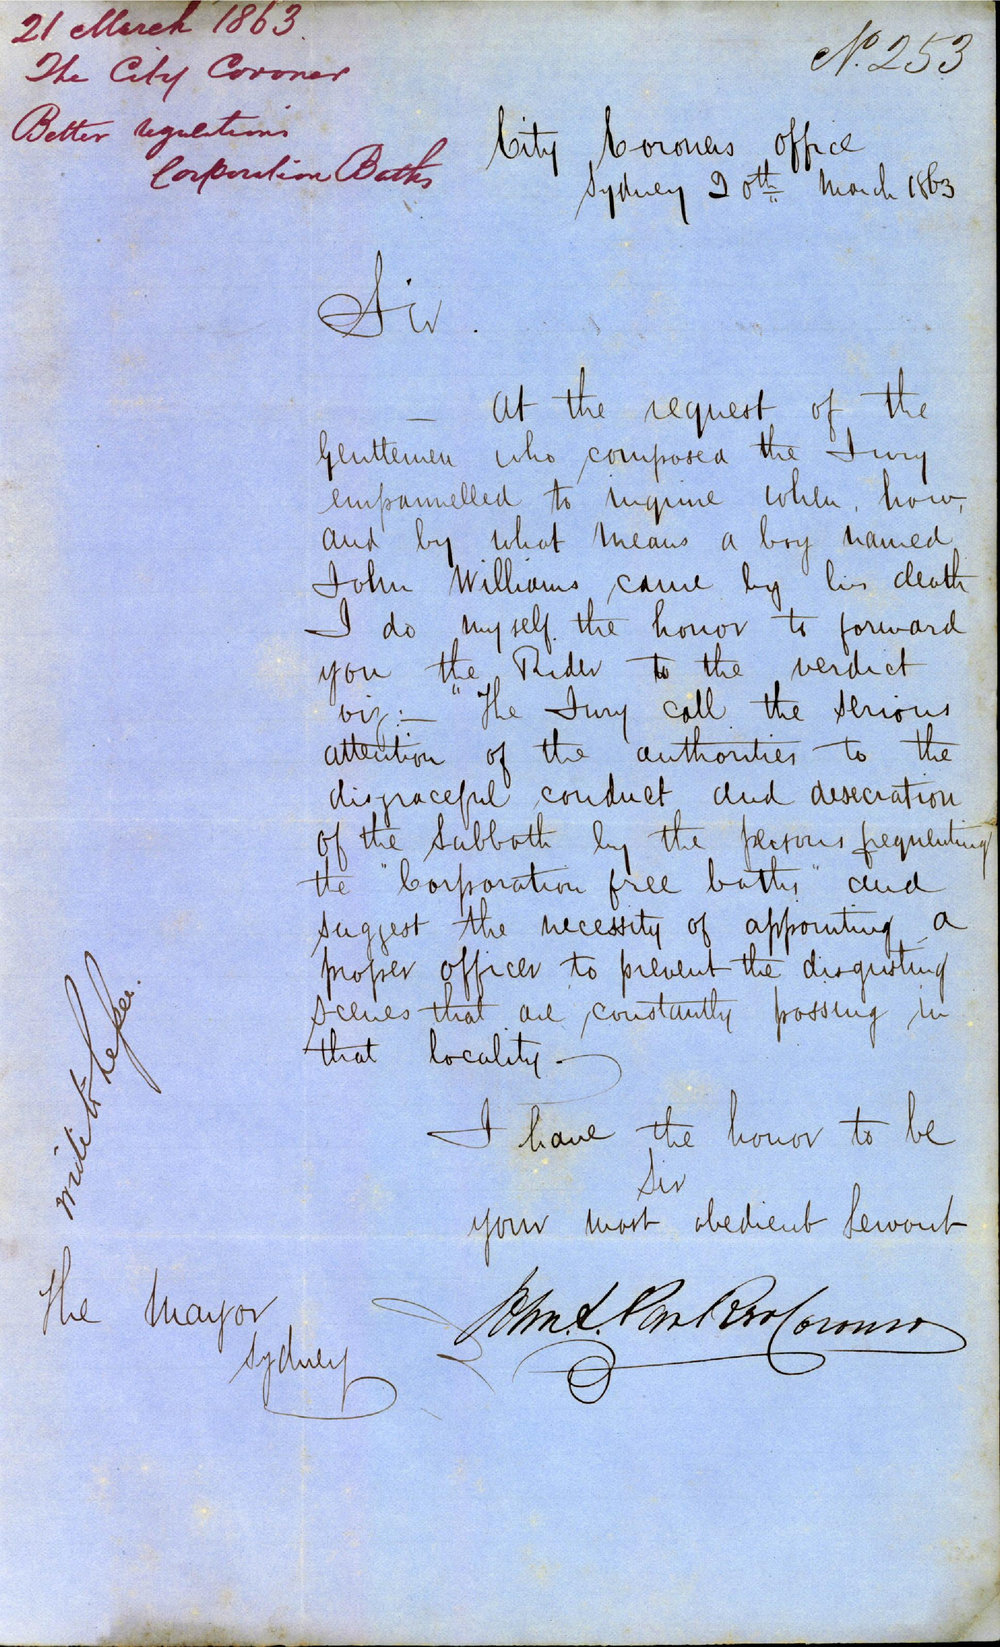 21 March 1863.
The City Coroner
Better regulations
Corporation Baths
No. 253
City Coroners Office
Sydney 20th March 1863
Sir.
— At the request of the
Gentlemen who composed the Jury
empannelled to inquire when, how,
and by what means a boy named
John Williams came by his death
I do myself the honor to forward
you the Rider to the verdict
viz:— "The Jury call the serious
attention of the authorities to the
disgraceful conduct and desecration
of the Sabbath by the persons frequenting
the "Corporation free baths" and
suggest the necessity of appointing a
proper officer to prevent the disgusting
scenes that are constantly passing in
that locality —
I have the honor to be
Sir
your most obedient Servant
John S. Parker Coroner
The Mayor
Sydney
write to